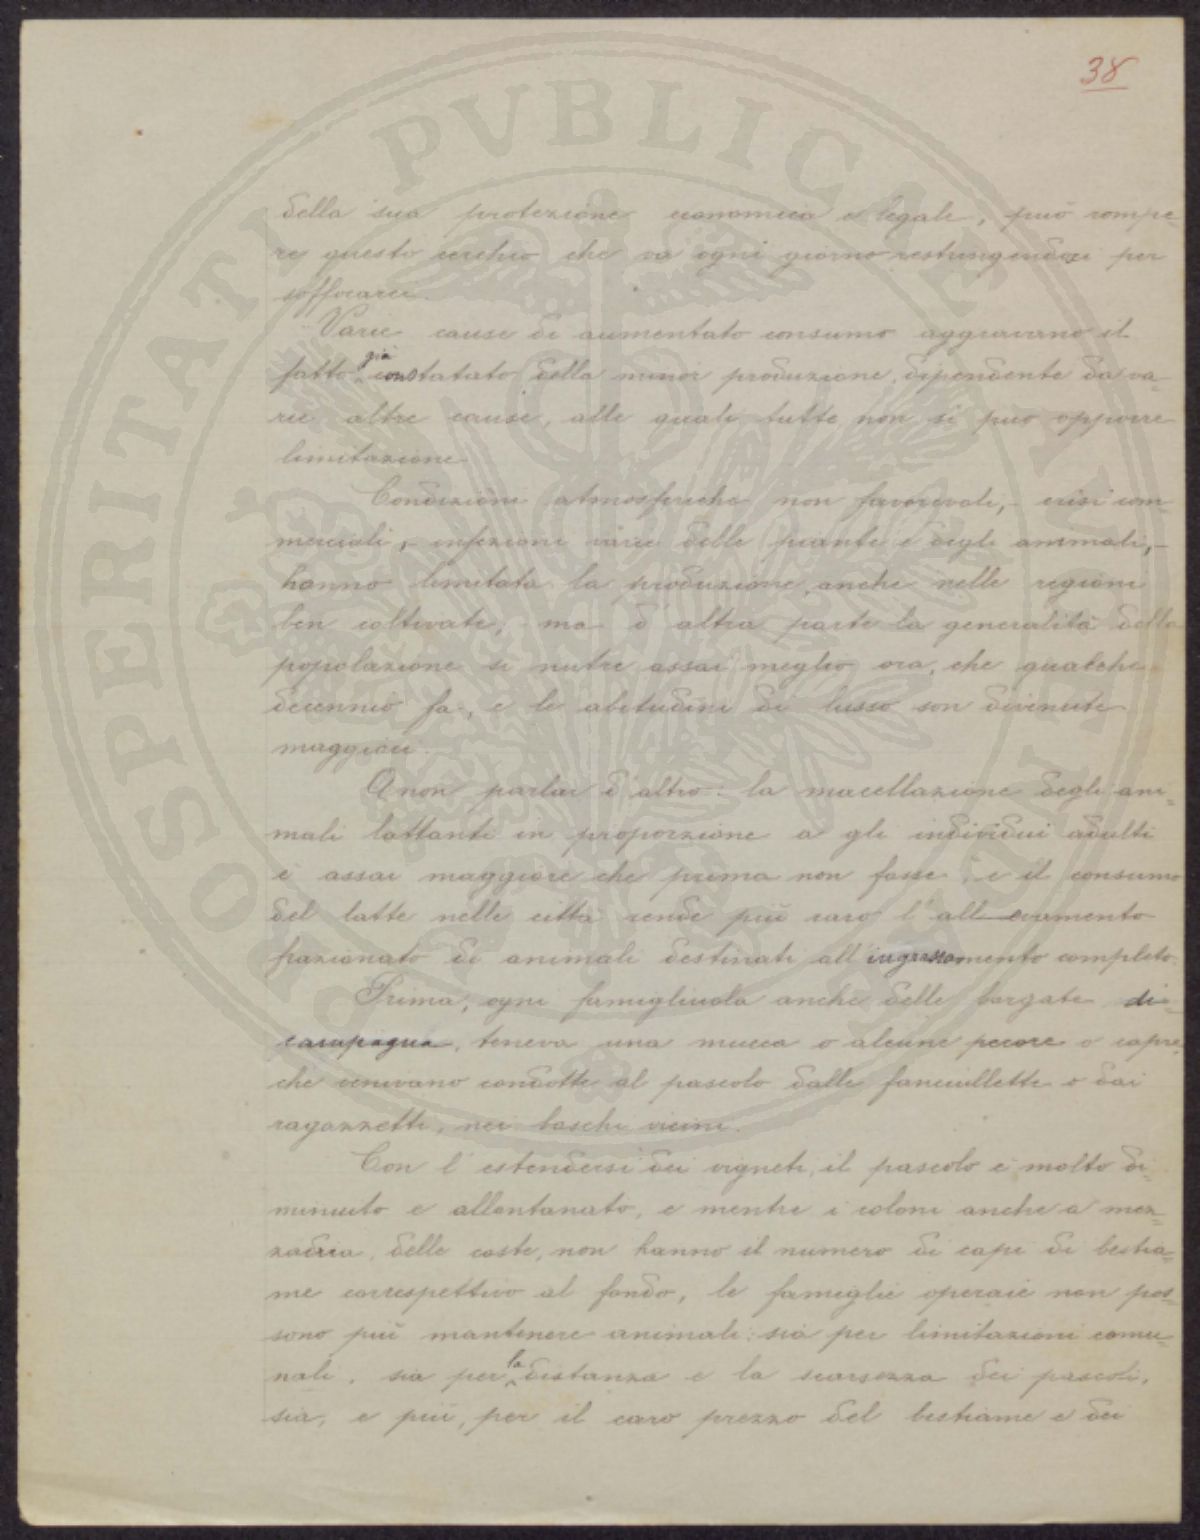 38
della sua protezione economica e legale, può rompe-
re questo cerchio che va ogni giorno restringendosi per
soffocarci.
Varie cause di aumentato consumo aggravano il
fatto già constatato della minor produzione, dipendente da va-
rie altre cause, alle quali tutte non si può opporre
limitazione.
Condizioni atmosferiche non favorevoli, - crisi com-
merciali, - infezioni varie delle piante e degli animali, -
hanno limitata la produzione, anche nelle regioni
ben coltivate; ma d'altra parte la generalità della
popolazione si nutre assai meglio ora, che qualche
decennio fa, e le abitudini di lusso son divenute
maggiori.
A non parlar d'altro: la macellazione degli ani-
mali lattanti in proporzione a gli individui adulti
è assai maggiore che prima non fosse, e il consumo
del latte nelle città rende più raro l'allevamento
razionato di animali destinati all'ingrassamento completo.
Prima, ogni famigliuola anche delle borgate di
campagna, teneva una mucca o alcune pecore o capre
che venivano condotte al pascolo dalle fanciullette o dai
ragazzetti, nei boschi vicini.
Con l'estendersi dei vigneti, il pascolo è molto di-
minuito e allontanato, e mentre i coloni anche a mez-
zadria, delle coste, non hanno il numero di capi di bestia-
me correspettivo al fondo, le famiglie operaie non pos-
sono più mantenere animali: sia per limitazioni comu-
nali, sia per la distanza e la scarsezza dei pascoli,
sia, e più, per il caro prezzo del bestiame e dei
PROSPERITATI PVBLICAE AVGENDAE